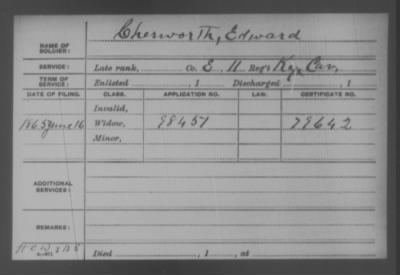 Chesworth, Edward
NAME OF SOLDIER:
SERVICE: Late rank, Co. E, 11 Reg't Ky. Cav.
TERM OF SERVICE: Enlisted , 1 Discharged , 1
DATE OF FILING. CLASS. APPLICATION NO. LAW. CERTIFICATE NO.
Invalid,
1865 June 16 Widow, 98451 79642
Minor,
ADDITIONAL SERVICES:
REMARKS:
Died , 1 , at